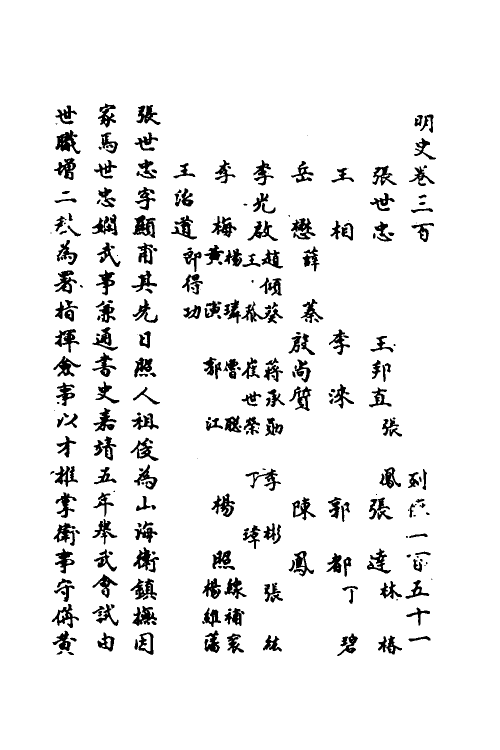 明史卷三百 列傳一百五十一
張世忠 王邦直 張鳳 張達 林椿
王相 李淶 郭都 丁碧
岳懋 薛蓁 殷尚質 陳鳳
李光啟 趙傾葵 蔣承勛 李彬 張紘 王蔡 崔世榮 丁璋
李梅 楊璘 曹聰 黃演 郭江 楊照 線補袞 楊維藩
王治道 郎得功
張世忠字顯甫其先日照人祖俊為山海衛鎮撫因
家焉世忠嫻武事兼通書史嘉靖五年舉武會試由
世職增二秩為署指揮僉事以才推掌衛事守備黃